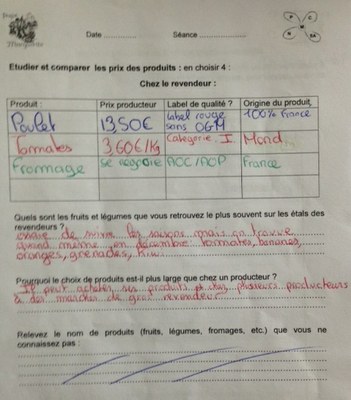 Projet
Marguerite
Date ............... Séance ....................
Etudier et comparer les prix des produits : en choisir 4 :
Chez le revendeur :
Produit : Prix producteur Label de qualité ? Origine du produit
Poulet 13,50€ Label rouge sans OGM 100% France
Tomates 3,60€/Kg Catégorie I Mond
Fromage se négocie AOC/AOP France
Quels sont les fruits et légumes que vous retrouvez le plus souvent sur les étals des
revendeurs ?
essaie de suivre les saisons mais on trouve
quand même en décembre tomates, bananes,
oranges, grenades, kiwi
Pourquoi le choix de produits est-il plus large que chez un producteur ?
Il peut acheter ses produits à des plusieurs producteurs
à des marchés de gros revendeur
Relevez le nom de produits (fruits, légumes, fromages, etc.) que vous ne
connaissez pas :